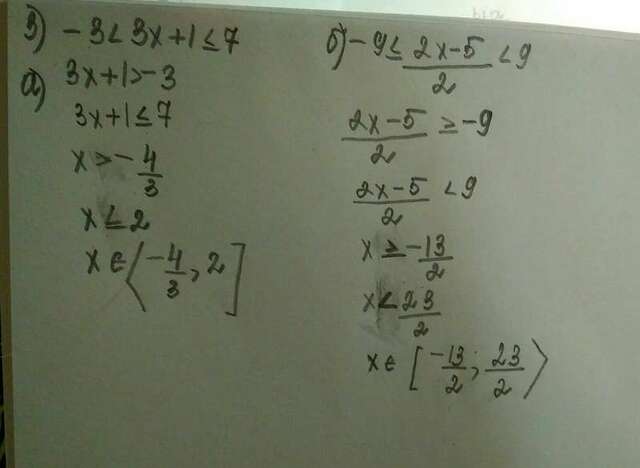 3) -3 < 3x+1 ≤ 7
а) 3x+1 > -3
3x+1 ≤ 7
x > -4/3
x ≤ 2
x ∈ ⟨-4/3, 2]
б) -9 ≤ (2x-5)/2 < 9
(2x-5)/2 ≥ -9
(2x-5)/2 < 9
x ≥ -13/2
x < 23/2
x ∈ [-13/2; 23/2⟩